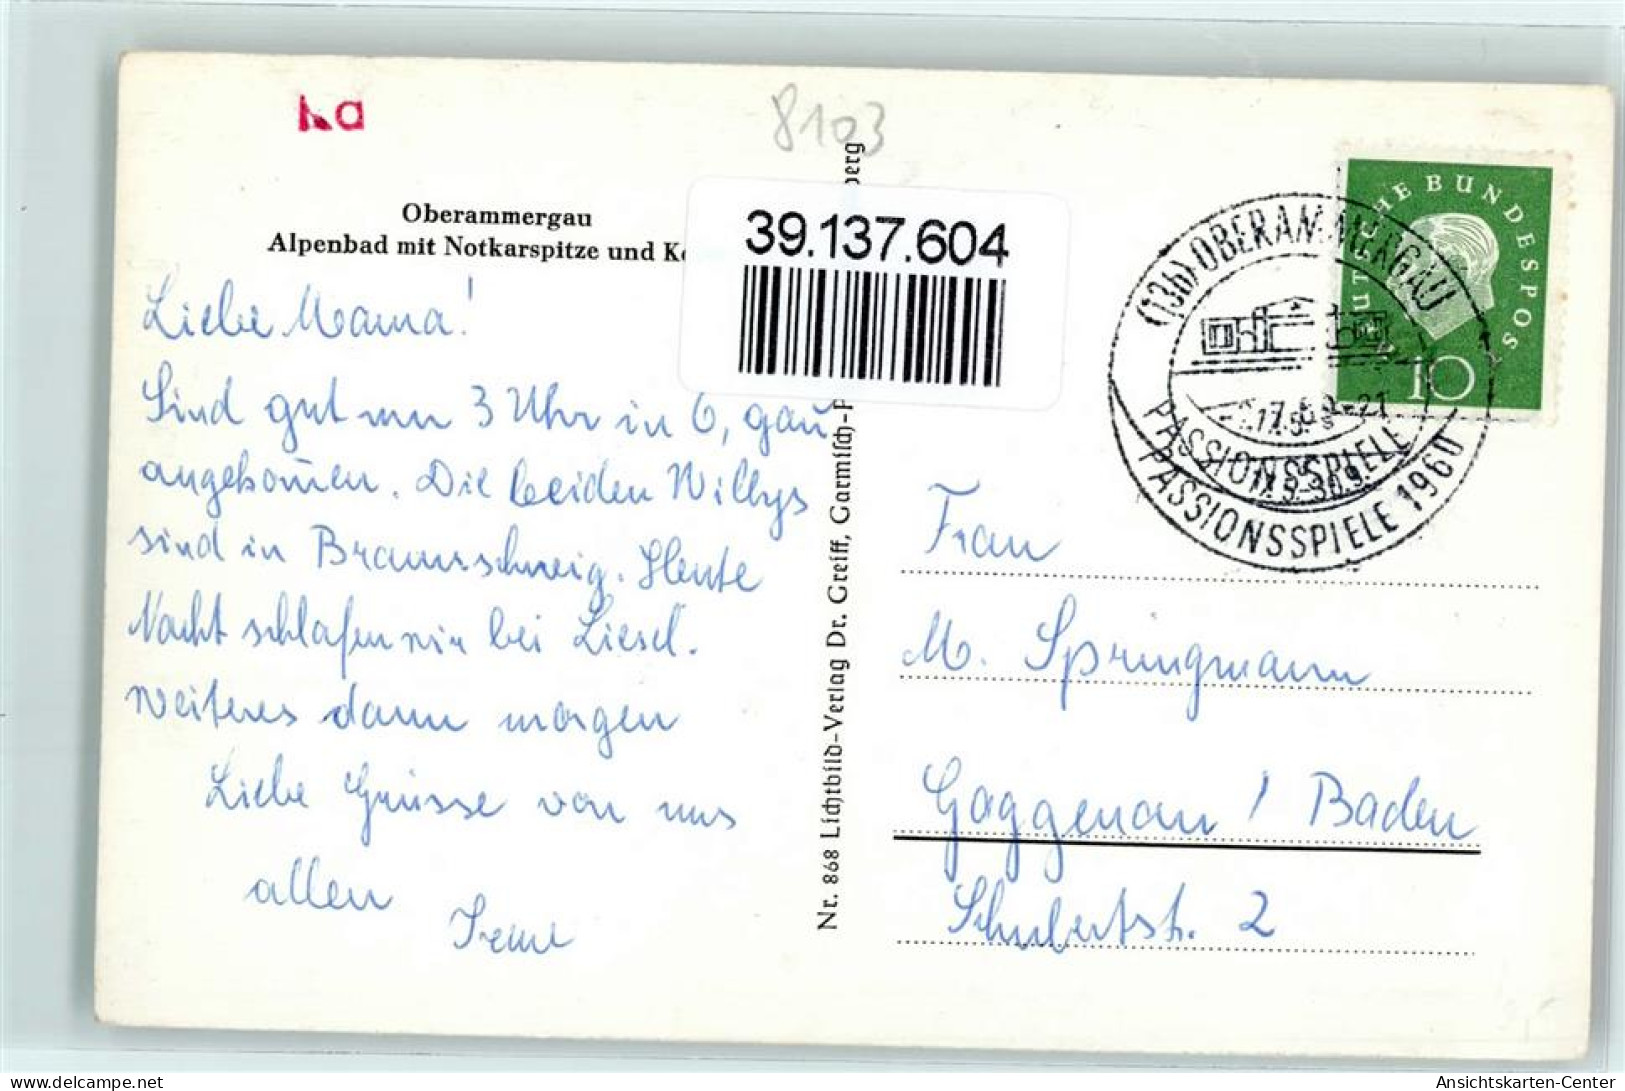 8103
Oberammergau
Alpenbad mit Notkarspitze und
39.137.604
Liebe Mama!
Sind gut um 3 Uhr in O, gau
angekommen. Die beiden Willys
sind in Braunschweig. Heute
Nacht schlafen wir bei Liesel.
Weiteres dann morgen
Liebe Grüsse von uns
allen
Irene
Nr. 868 Lichtbild-Verlag Dr. Greiff, Garmisch-P
berg
DEUTSCHE BUNDESPOST
10
(13b) OBERAMMERGAU
PASSIONSSPIELE
PASSIONSSPIELE 1960
Frau
M. Springmann
Gaggenau / Baden
Schubertstr. 2
Ansichtskarten-Center